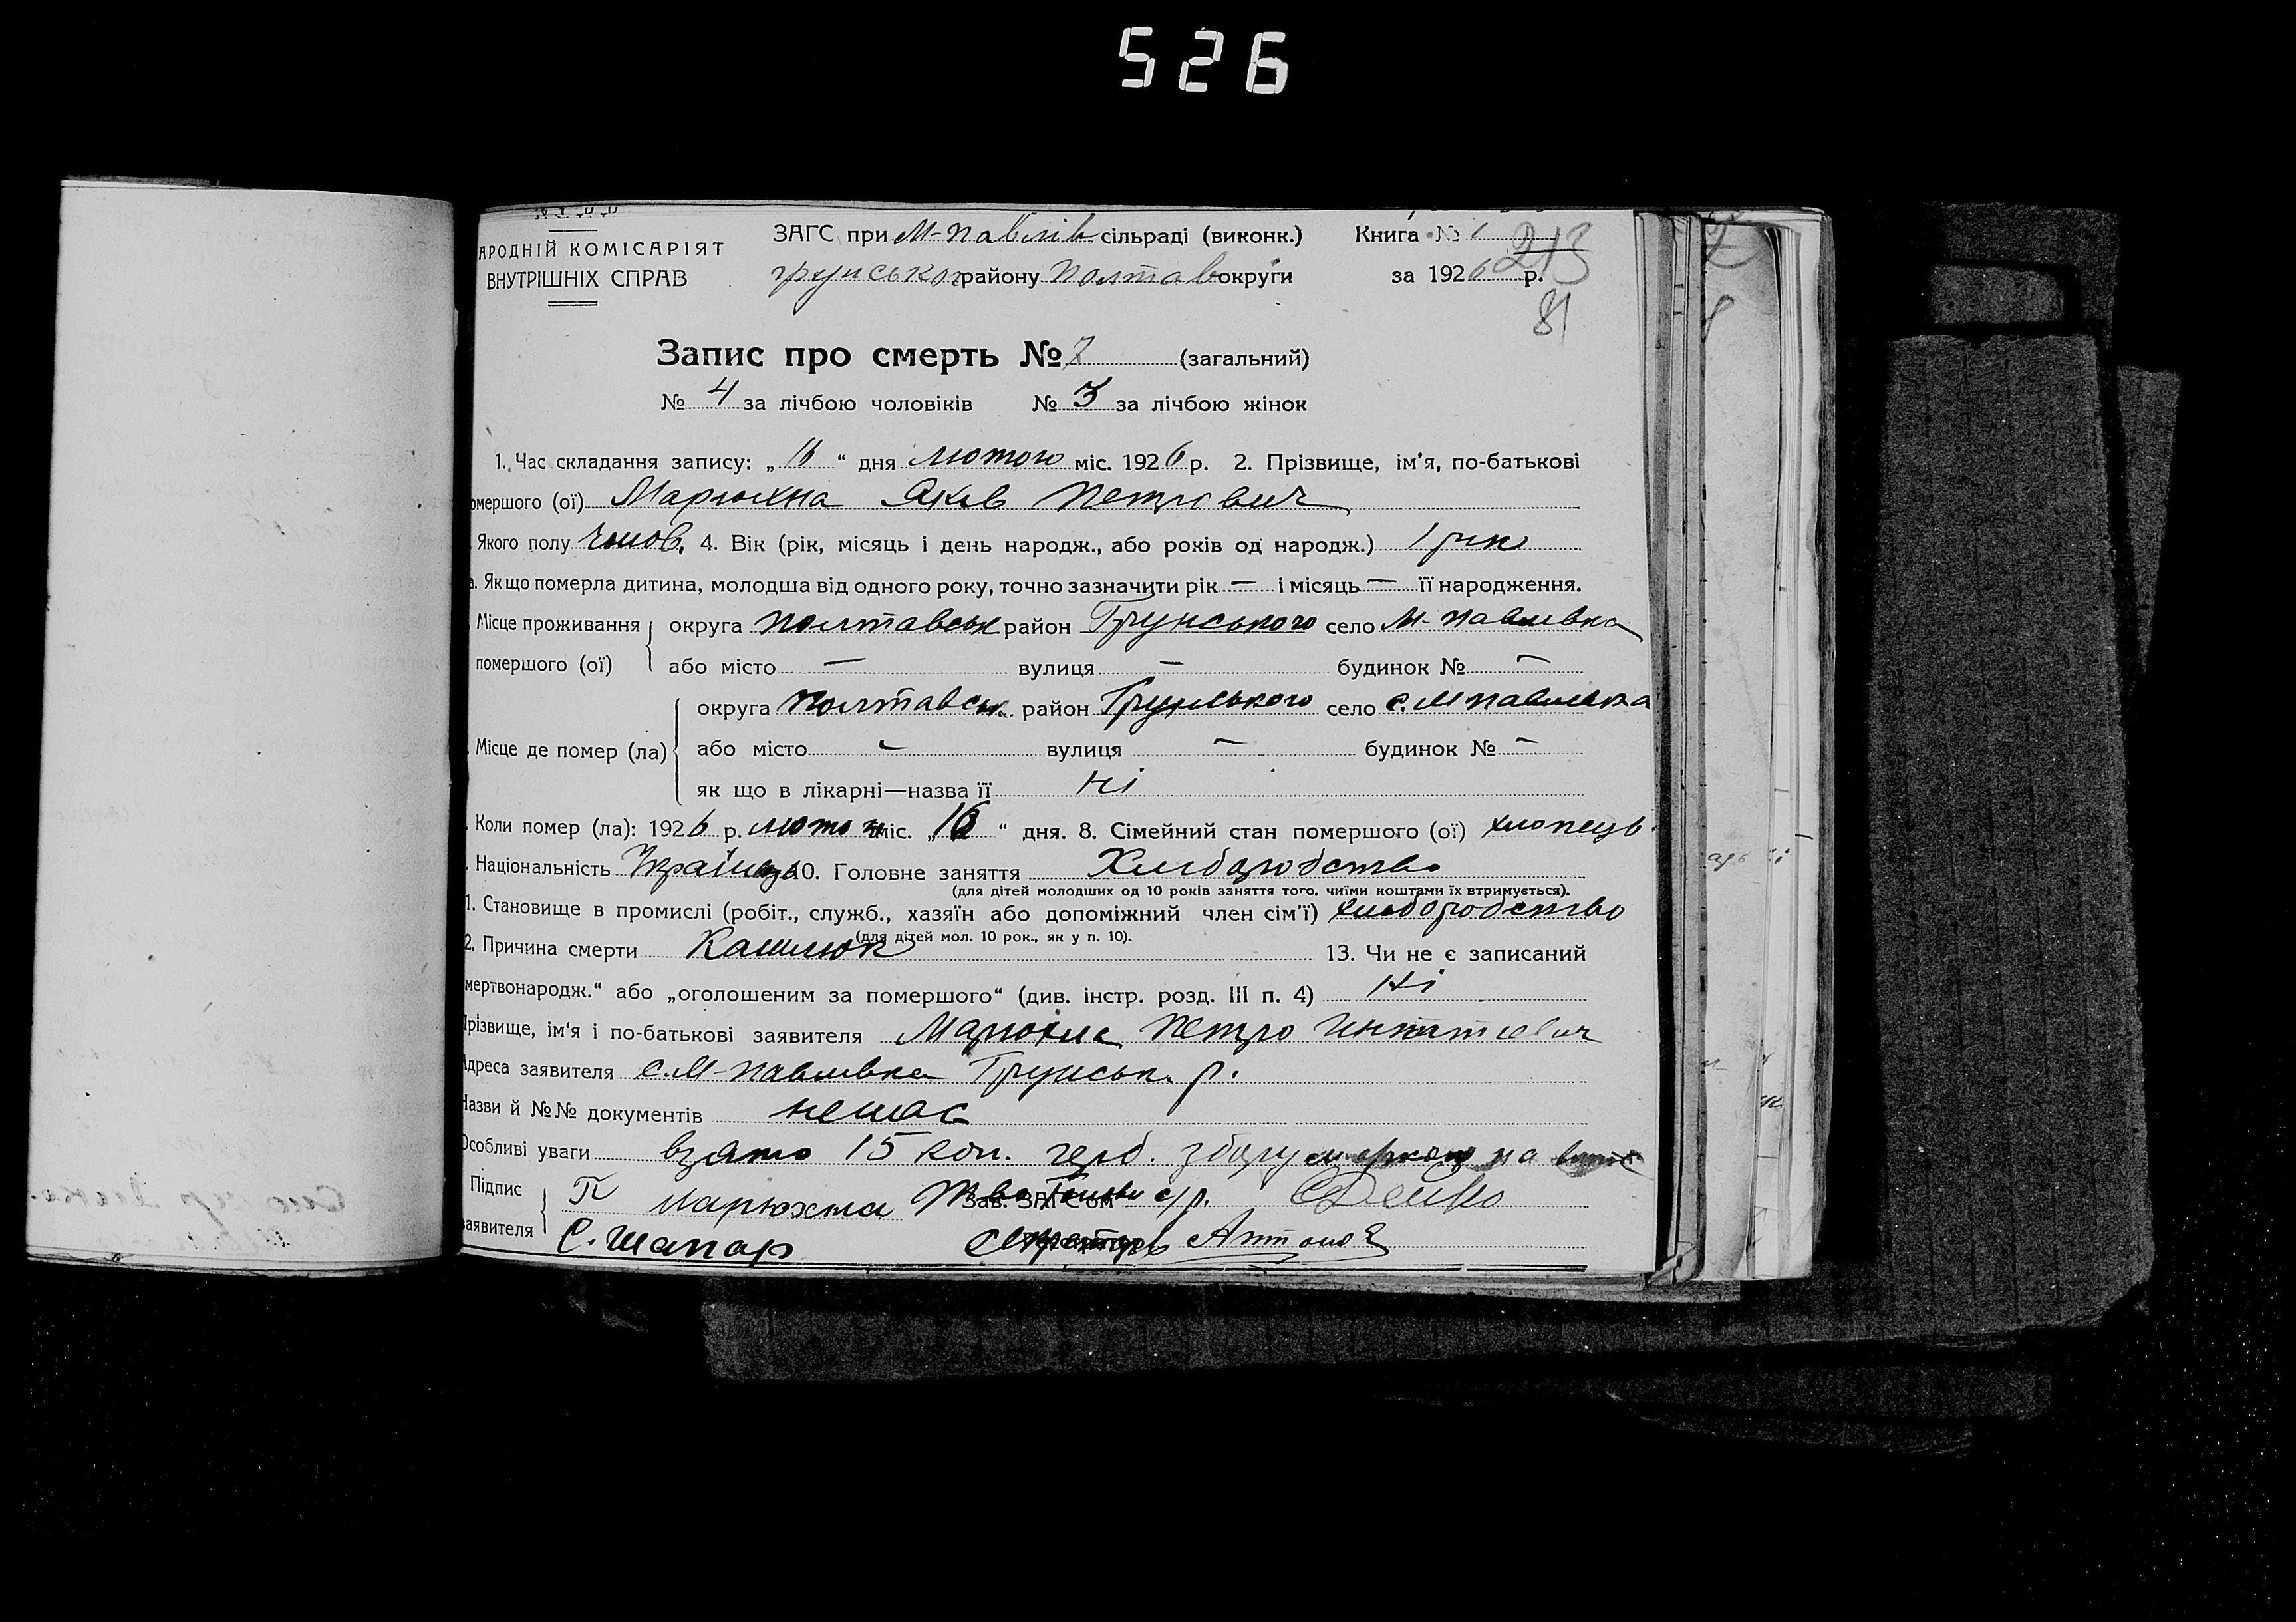 526
АРОДНІЙ КОМІСАРІЯТ
ВНУТРІШНІХ СПРАВ
ЗАГС при М-Павлів сільраді (виконк.) Книга № 1
213
грунсько району Полтав округи за 1926 р.
81
Запис про смерть № 7 (загальний)
№ 4 за лічбою чоловіків № 3 за лічбою жінок
1. Час складання запису: „16“ дня лютого міс. 1926 р. 2. Прізвище, ім’я, по-батькові
омершого (ої) Марюхна Яків Петрович
Якого полу чолов. 4. Вік (рік, місяць і день народж., або років од народж.) 1 рік
а. Як що померла дитина, молодша від одного року, точно зазначити рік — і місяць — її народження.
Місце проживання округа Полтавськ район Грунського село М-Павлівка
помершого (ої) або місто — вулиця — будинок № —
округа Полтавськ район Грунського село с. М Павлівка
Місце де помер (ла) або місто — вулиця — будинок № —
як що в лікарні—назва її Ні
Коли помер (ла): 1926 р. міс. „16“ дня. 8. Сімейний стан помершого (ої) хлопець
Національність Українець 10. Головне заняття Хліборобство
(для дітей молодших од 10 років заняття того, чиїми коштами їх втримується).
1. Становище в промислі (робіт., служб., хазяїн або допоміжний член сім’ї) хліборобство
(для дітей мол. 10 рок., як у п. 10).
2. Причина смерти Кашлюк 13. Чи не є записаний
мертвонародж.“ або „оголошеним за помершого“ (див. інстр. розд. III п. 4) Ні
Прізвище, ім‘я і по-батькові заявителя Марюхна Петро
Адреса заявителя с. М-Павлівка Грунськ. р.
Назви й №№ документів немає
Особливі уваги взято 15 коп. герб. збору маркою на
Підпис П Марюхна Зав. ЗАГС‘ом Голови с/р.
заявителя С. Шапар Секретарь Антонов